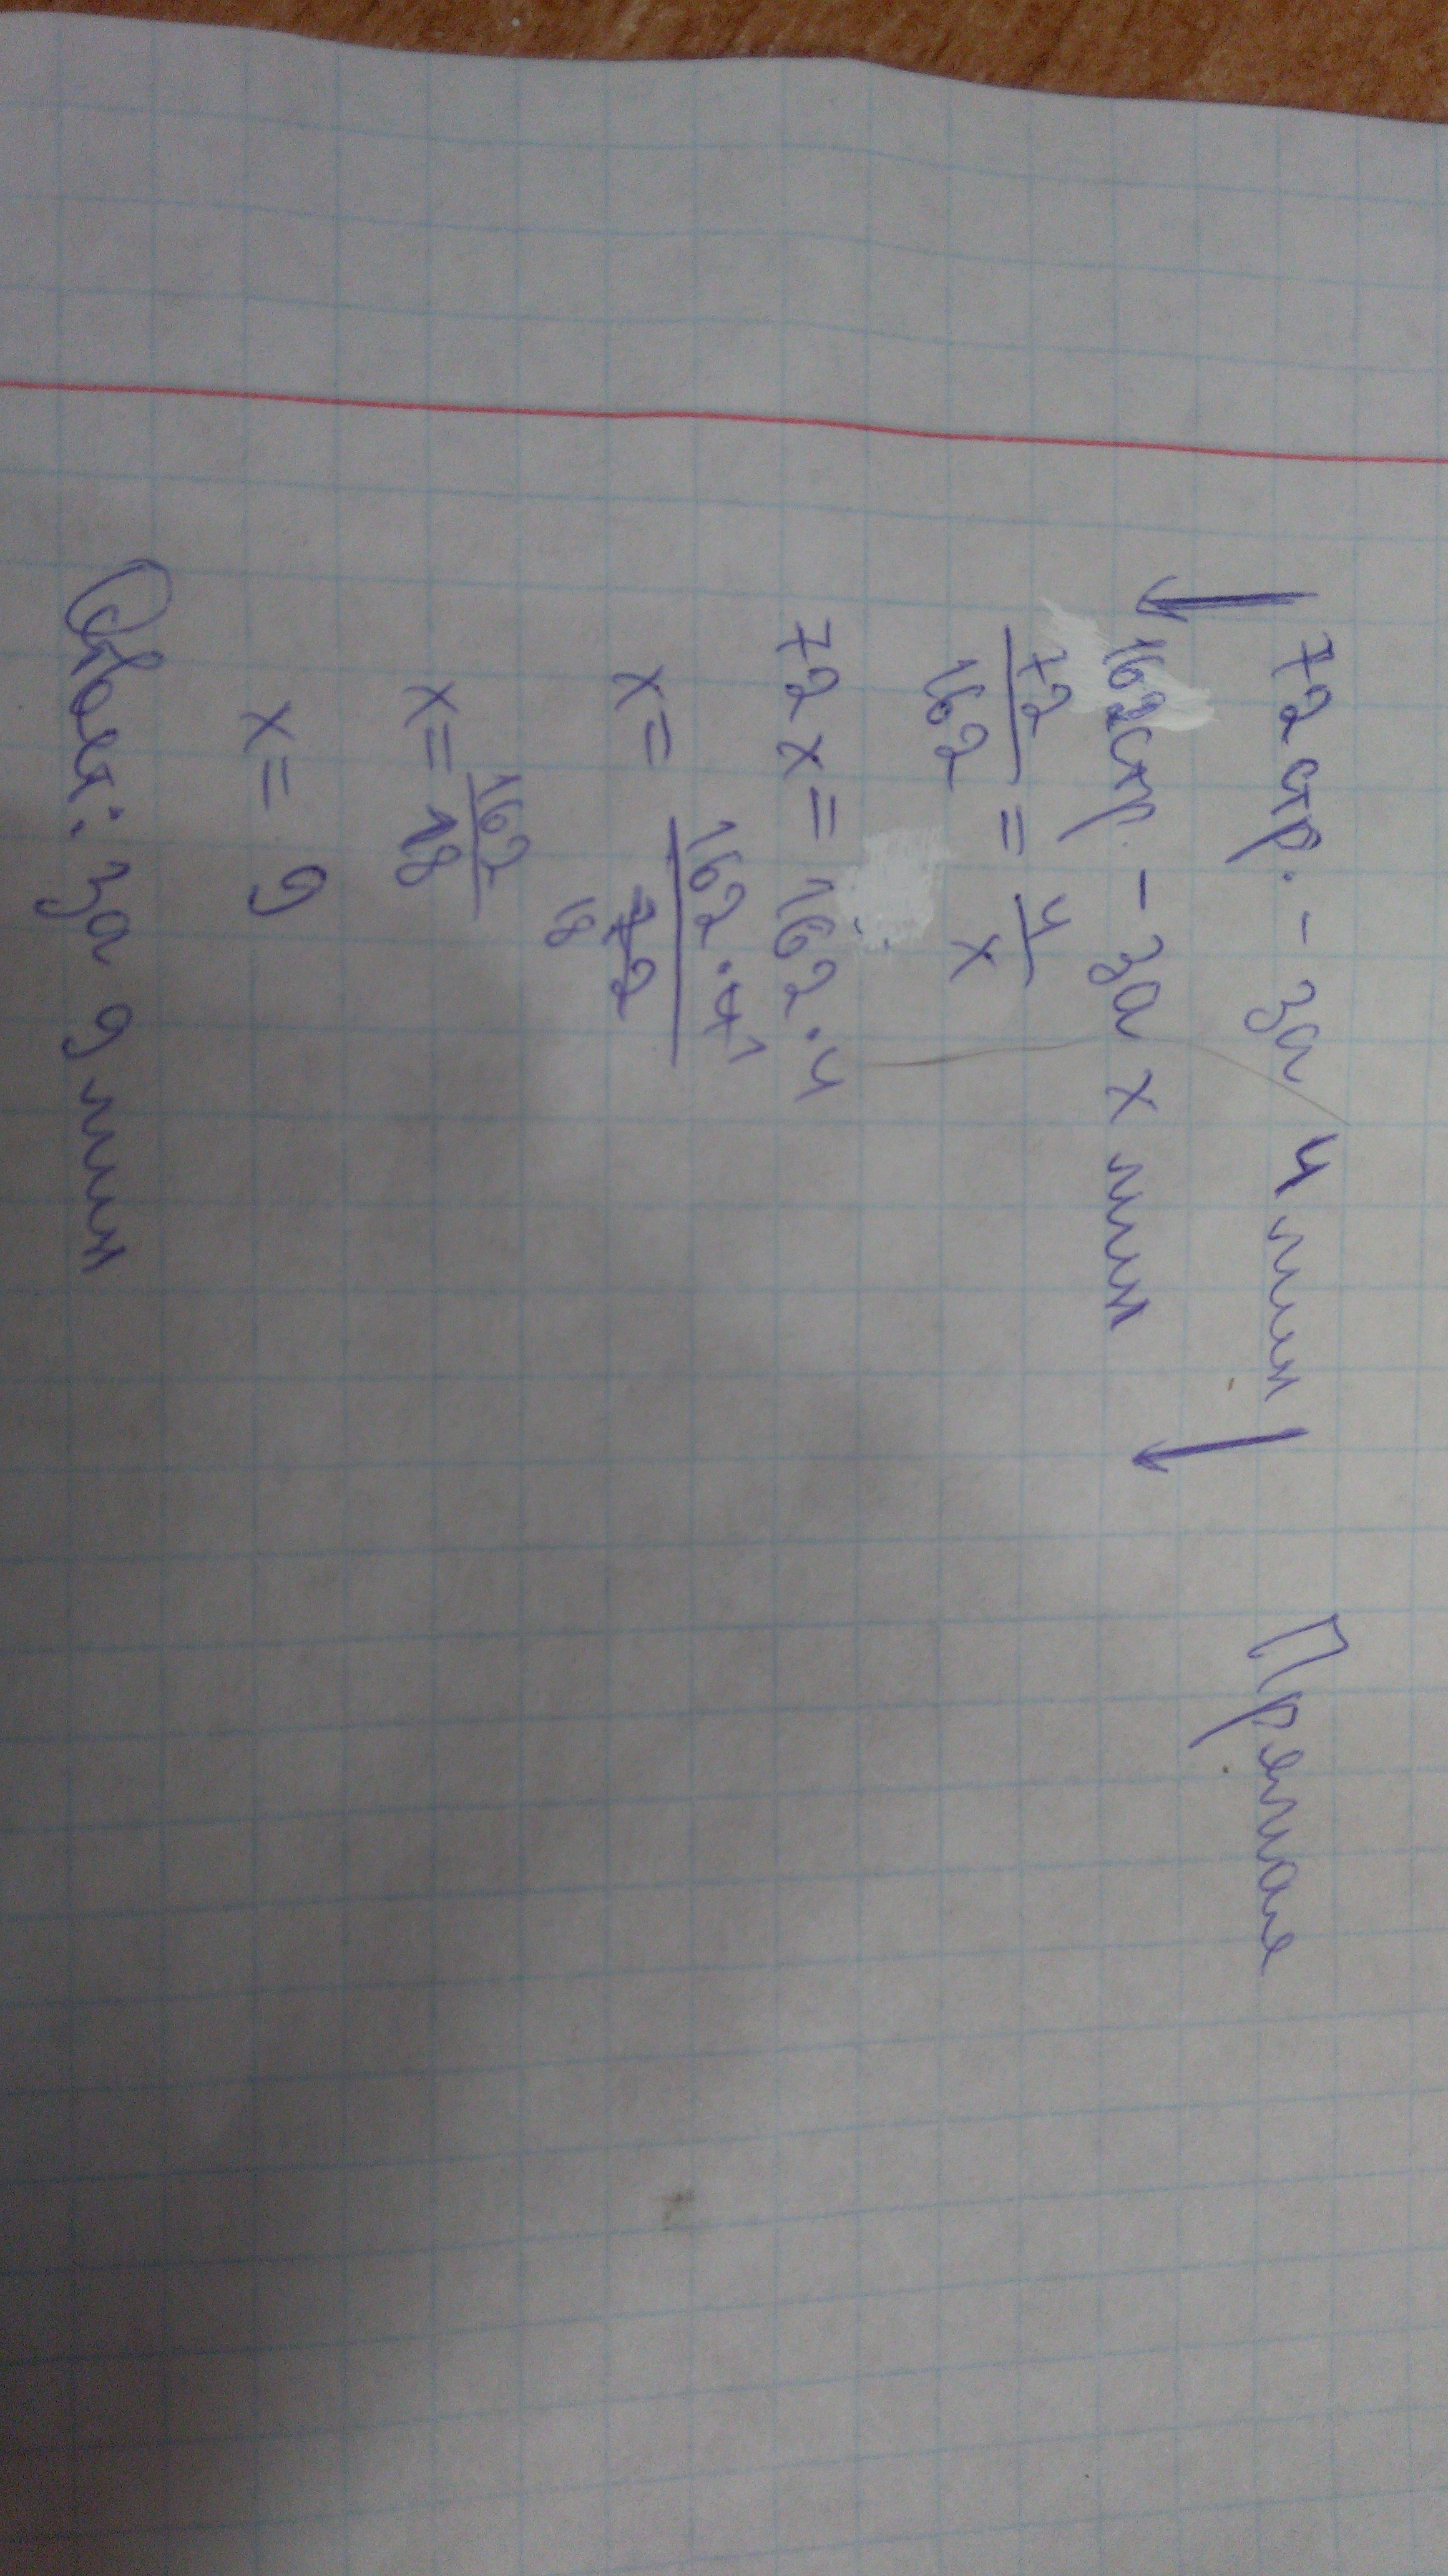 ↓ 72 стр. - за 4 мин ↓ Прямая
162стр - за x мин
72/162 = 4/x
72x = 162·4
x = 162·4 1/72 18
x = 162/18
x = 9
Ответ: за 9 мин